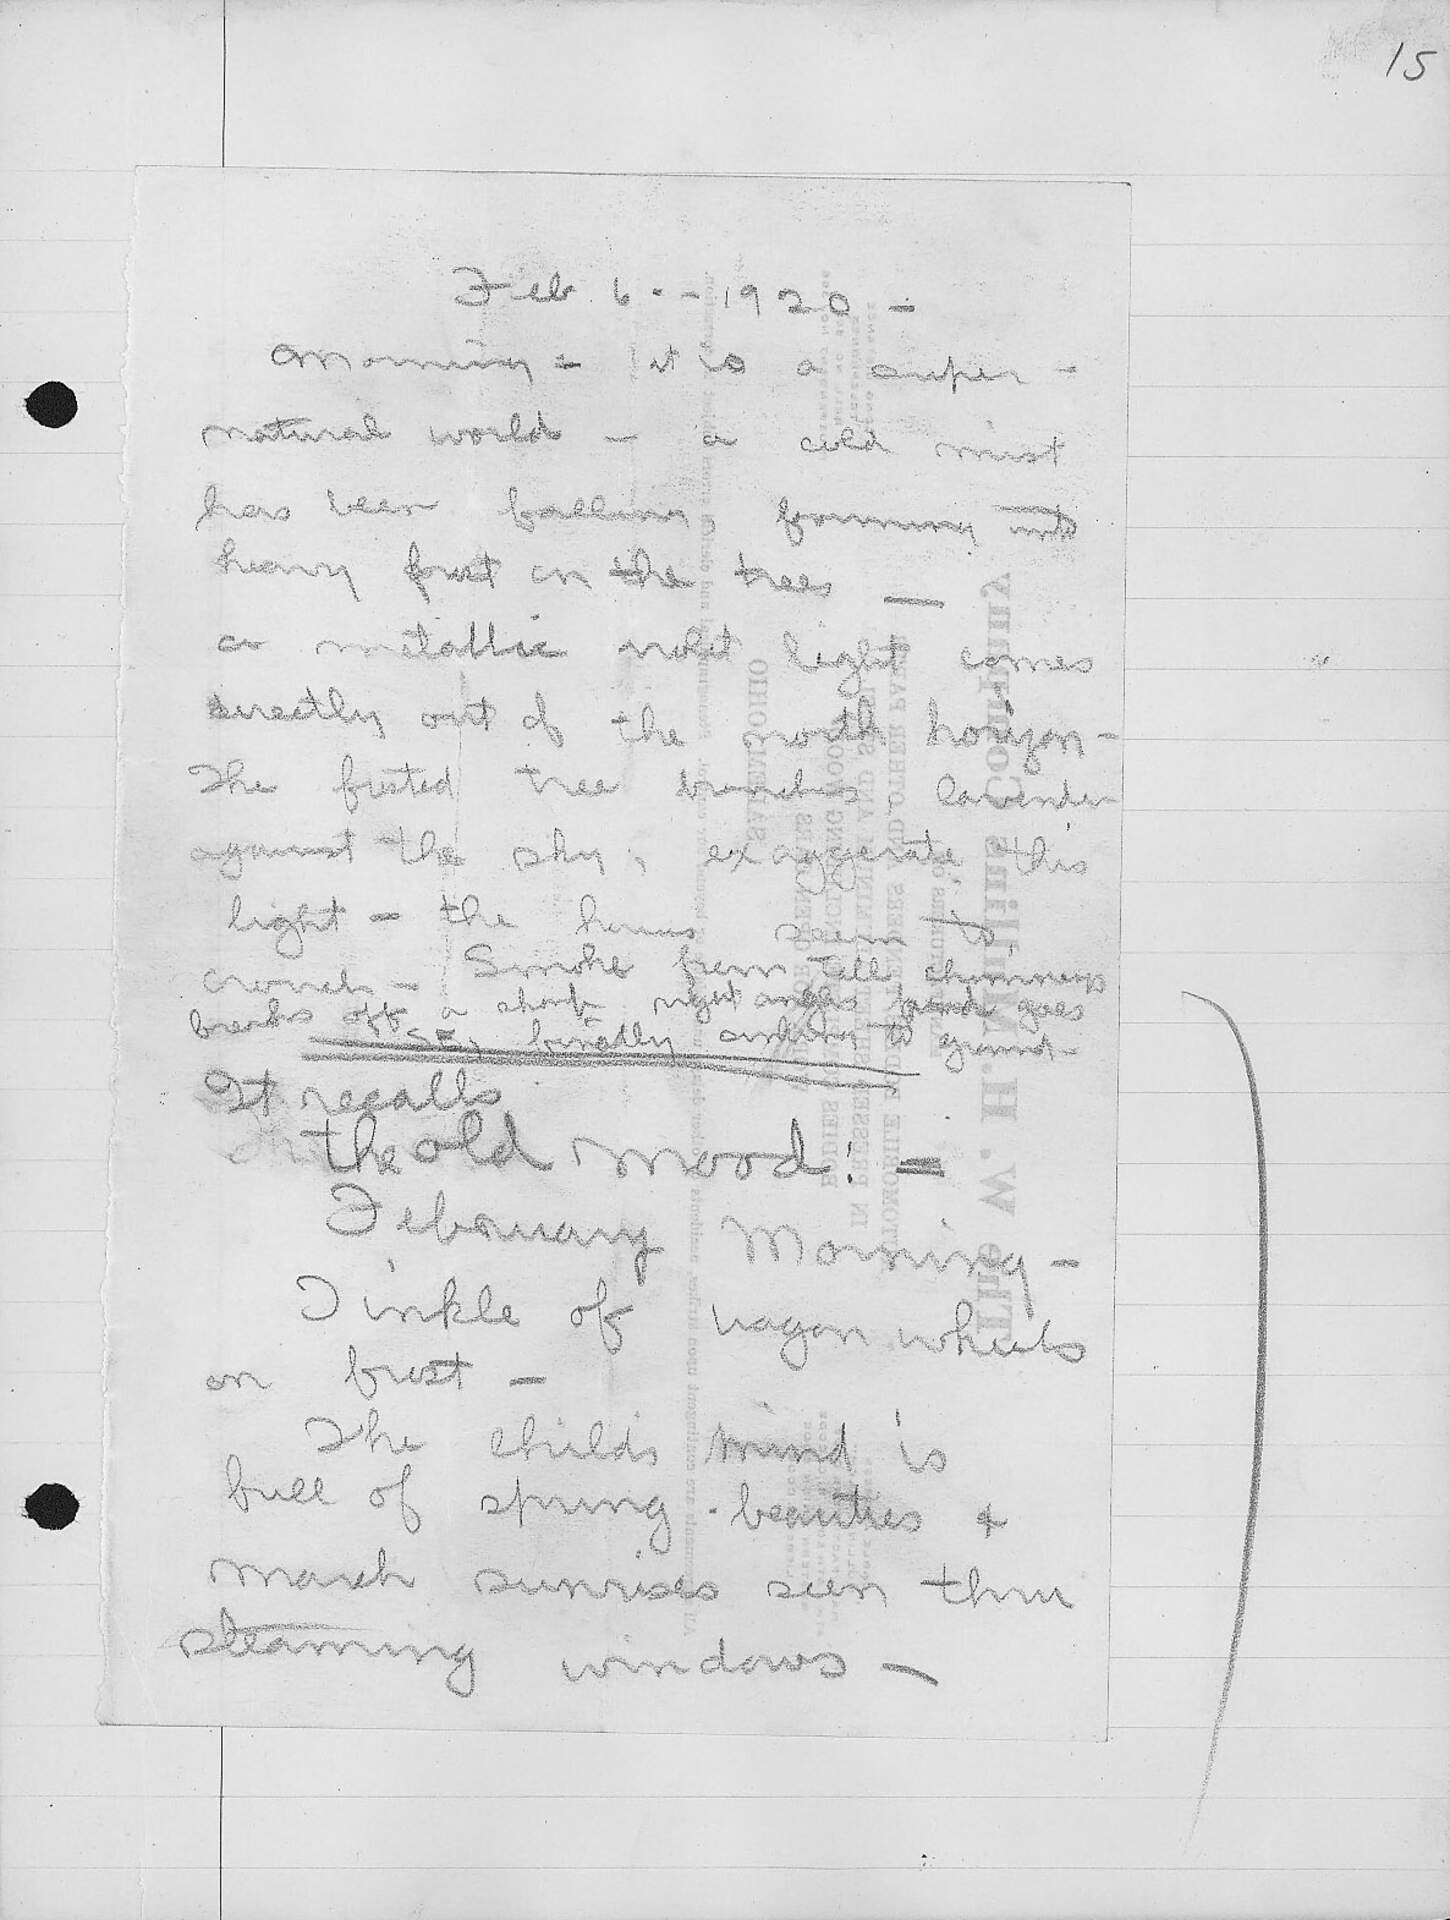 15
Feb. 6 - 1920 -
Morning - it is a super-
natural world - a cold mist
has been falling, forming into
heavy frost on the trees —
a metallic violet light comes
directly out of the north horizon -
The frosted tree branches, lavender
against the sky, exaggerate this
light - the houses seem to
crouch - Smoke from tall chimneys
breaks off a sharp right angles and goes
SE, finally sinking to ground -
It recalls
the old mood: -
February Morning -
Tinkle of wagon wheels
on frost -
The childs mind is
full of spring-beauties &
March sunrises seen thru
steaming windows -
The W. H. Mullins Company
AUTOMOBILE BODY FENDERS AND OTHER PARTS
IN PRESSED STEEL
SALEM, OHIO